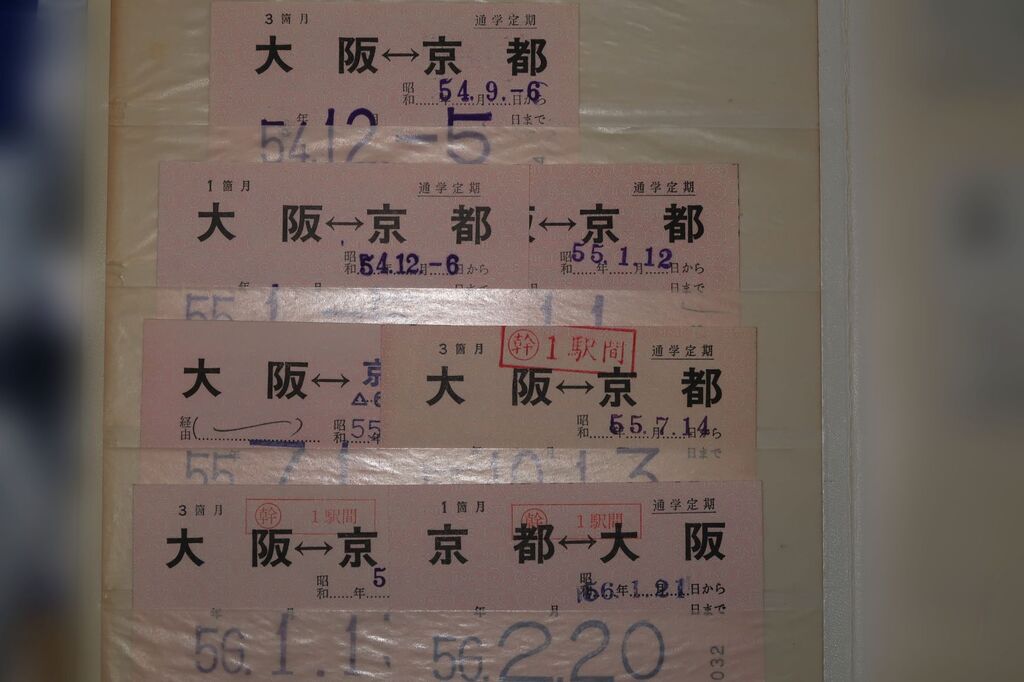 3箇月 通学定期
大阪↔京都
昭和 54.9.-6 年 月 日から
54.12-5 年 日まで
1箇月 通学定期 通学定期
大阪↔京都 ↔京都
昭和 54.12.-6 日から 昭和 55.1.12 年 月 日から
年 月 日まで
55.1
3箇月 ㊩1駅間 通学定期
大阪↔京 大阪↔京都
経由( ) 昭和55年 昭和 55.7.14 年 月 日から
日まで
55.7.1 10.13
3箇月 1駅間 1箇月 1駅間 通学定期
大阪↔京 京都↔大阪
昭和 5 年 昭和 56.1.21 年 月 日から
年 月 年 月 日まで
56.1.1 56.2.20
032